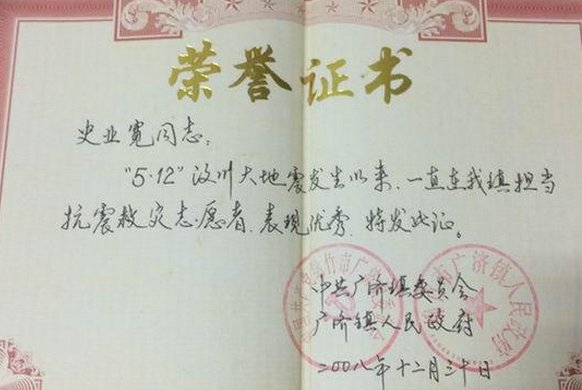 荣誉证书
史业宽同志：
“5·12”汶川大地震发生以来、一直在我镇担当
抗震救灾志愿者、表现优秀，特发此证。
中共广济镇委员会
广济镇人民政府
二〇〇八年十二月三十日